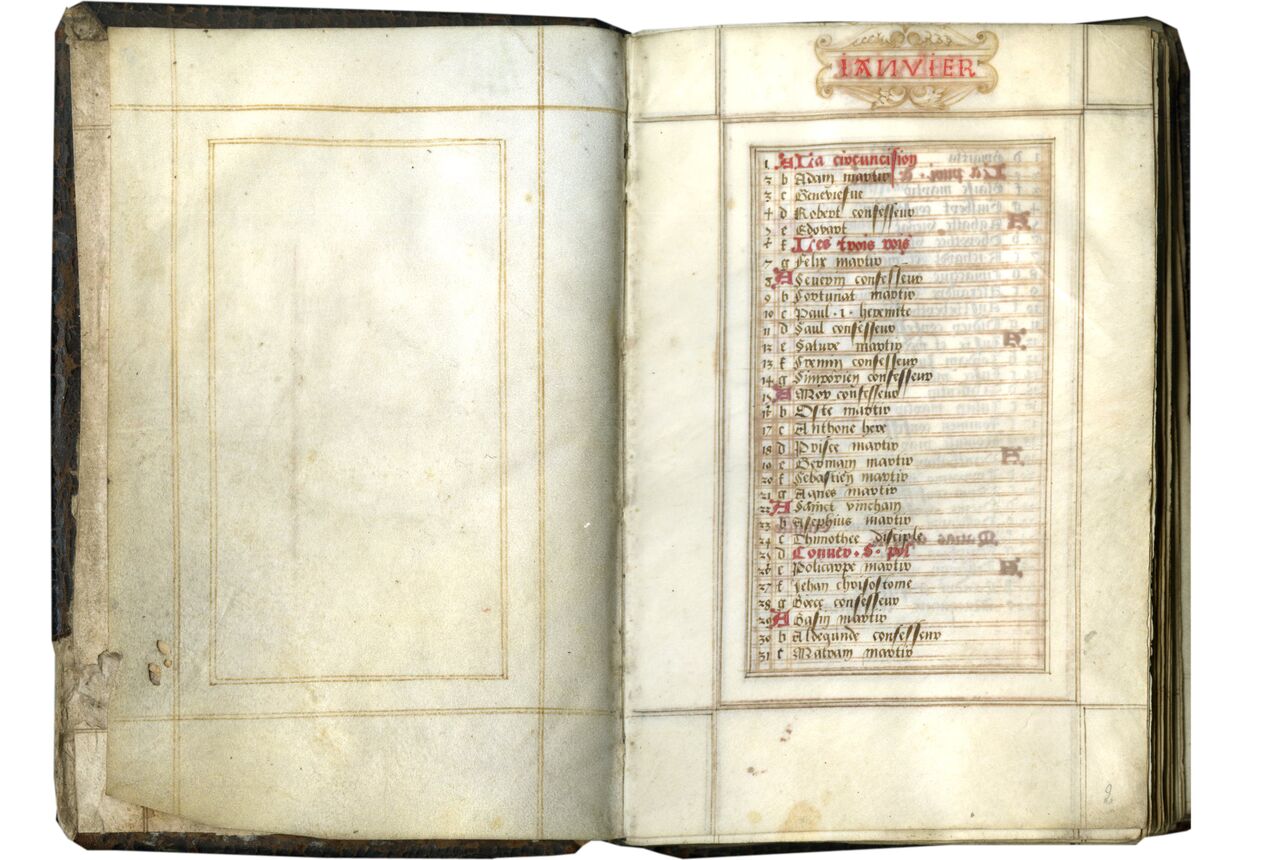 IANVIER
1 A La circuncision
2 b Adam martir
3 c Geneviefue
4 d Robert confesseur
5 e Edouart
6 f Les trois rois
7 g Felix martir
8 A Seuerin confesseur
9 b Fortunat martir
10 c Paul · 1 · heremite
11 d Saul confesseur
12 e Sature martir
13 f Fremin confesseur
14 g Simporien confesseur
15 A Mor confesseur
16 b Oste martir
17 c Anthone here
18 d Prisce martir
19 e Germain martir
20 f Sebastien martir
21 g Agnes martir
22 A Sainct vincham
23 b Asephius martir
24 c Thimothee disciple
25 d Conuer · S · pol
26 e Policarpe martir
27 f Jehan chrisostome
28 g Boece confesseur
29 A Basin martir
30 b Aldegunde confesseur
31 c Matram martir
2